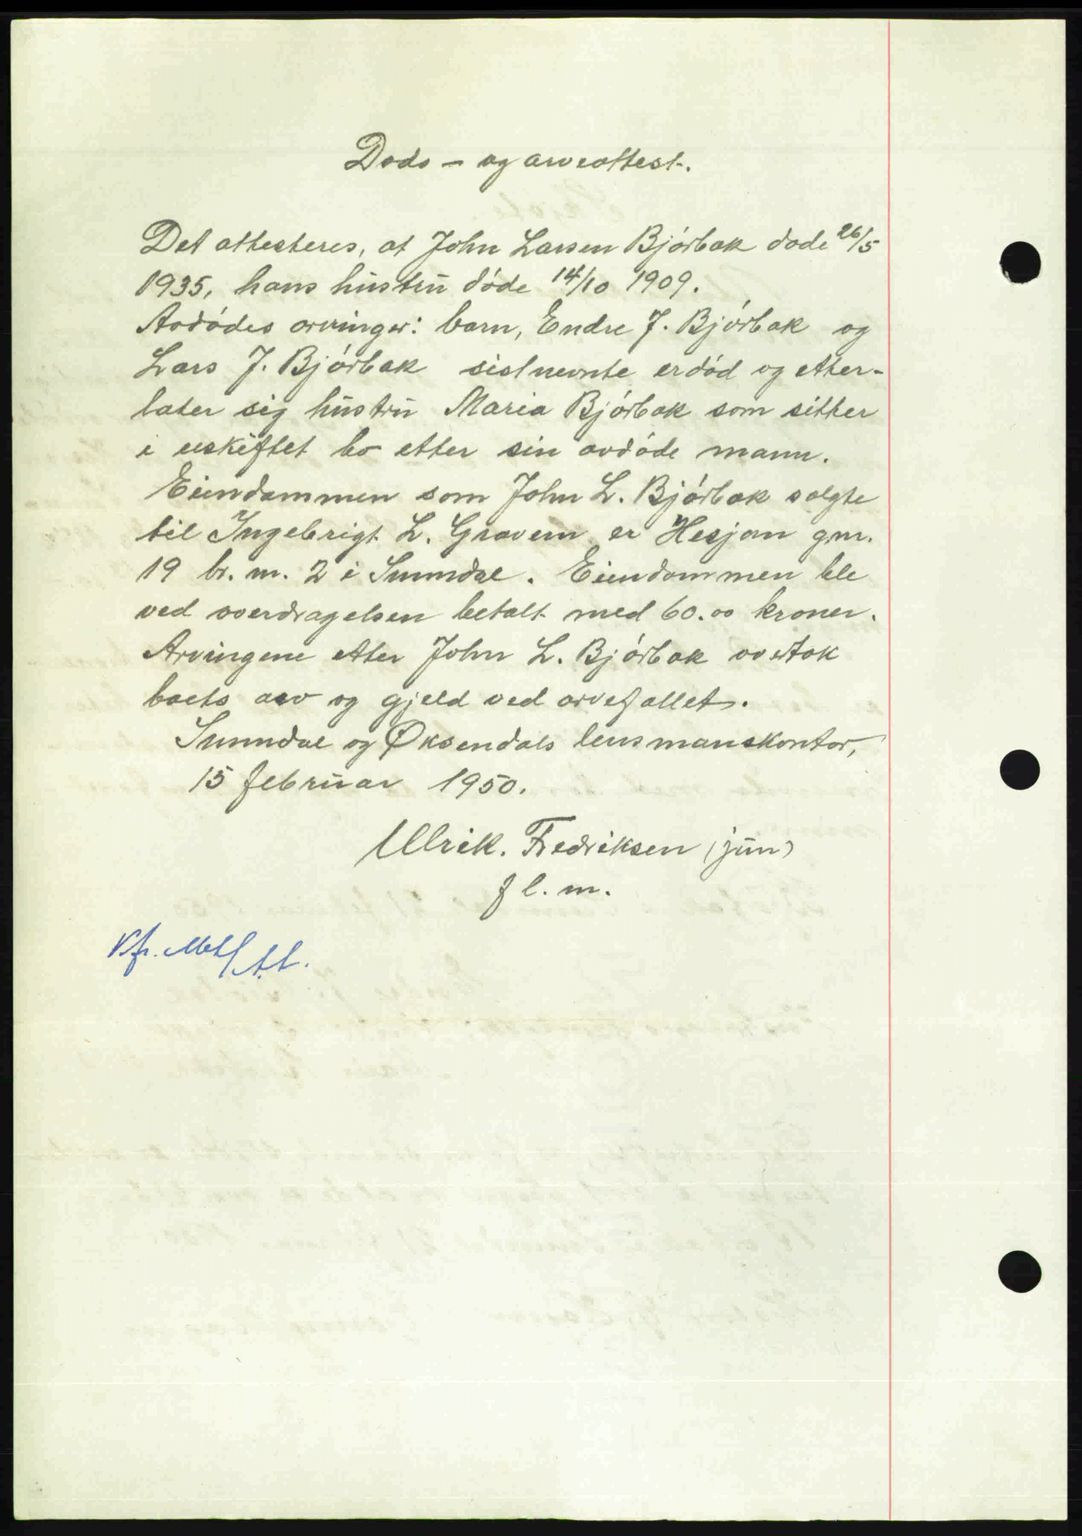 Døds - og arveattest.
Det attesteres, at John Larsen Bjørbak døde 26/5
1935, hans hustru døde 14/10 1909.
Avdødes arvinger: barn, Endre J. Bjørbak og
Lars J. Bjørbak sistnevnte er død og etter-
later sig hustru Maria Bjørbak som sitter
i uskiftet bo etter sin avdøde mann.
Eiendommen som John L. Bjørbak solgte
til Ingebrigt L. Gravem er Hesjan gnr.
19 br. nr. 2 i Sunndal. Eiendommen ble
ved overdragelsen betalt med 60.00 kroner.
Arvingene etter John L. Bjørbak overtok
boets arv og gjeld ved arvefallet.
Sunndal og Øksendals lensmanskontor,
15 februar 1950.
Ulrik. Fredriksen (jun)
f l. m.
Kfr.